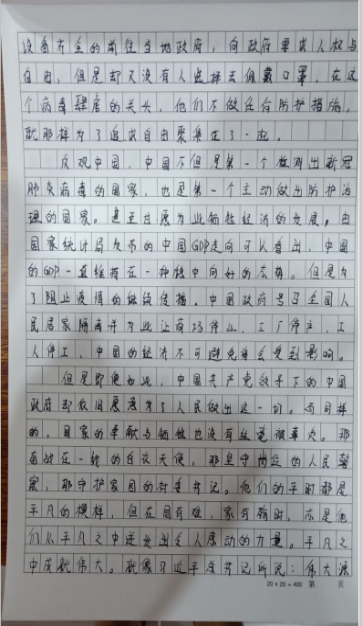 没有齐全的前往当地政府，向政府要求人权与
自由，但是却又没有人选择去佩戴口罩，在这
个病毒肆虐的关头，他们不做任何防护措施，
就那样为了追求自由聚集在了一起。
反观中国，中国不但是第一个检测出新冠
肺炎病毒的国家，也是第一个主动做出防护治
理的国家。甚至甘愿为此牺牲经济的发展。由
国家统计局发布的中国GDP走向可以看出，中国
的GDP一直维持在一种稳中向好的态势。但是为
了阻止疫情的继续传播，中国政府号召全国人
民居家隔离并为此让商场停业，工厂停产，工
人停工，中国的经济不可避免将会受到影响。
但是即便如此，中国共产党领导下的中国
政府却依旧愿意为了人民做出这一切。而同样
的，国家的奉献与牺牲也没有被遗忘辜负。那
奋战在一线的白衣天使，那坚守岗位的人民警
察，那守护家园的村委书记。他们的平时都是
平凡的模样，但在国有难，家有难时，亦是他
们从平凡之中迸发出令人感动的力量。平凡之
中成就伟大。就像习近平总书记所说：伟大源
20×20=400 第 页